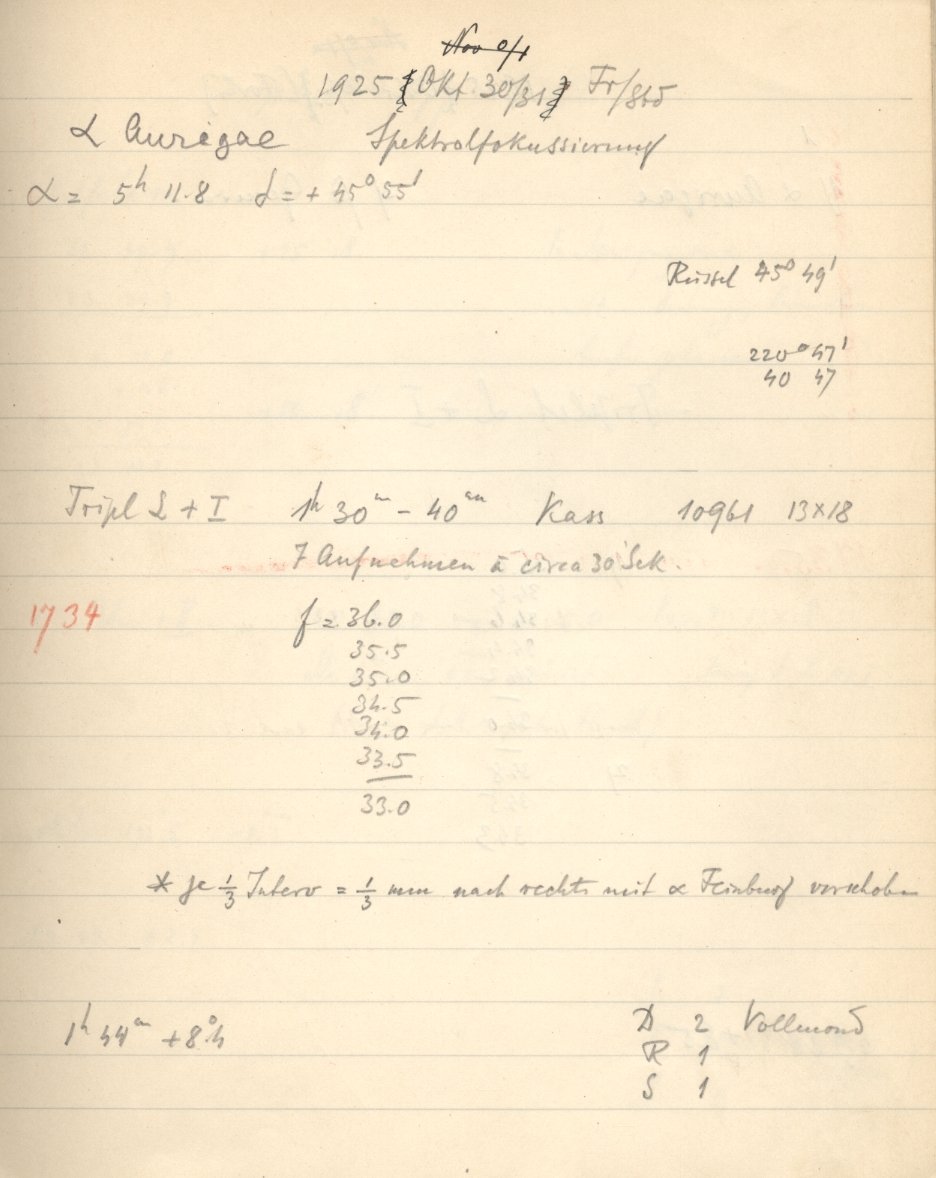 Nov 0/1
1925 Okt. 30/31 Fr/Sto
α Aurigae Spektralfokussierung
α = 5h 11.8 δ = + 45° 55'
Rüssel 45° 49'
220° 47'
40 47
Tripl L + I 1h 30m – 40m Kass 10961 13×18
7 Aufnehmen à circa 30 Sek.
1734 f = 36.0
35.5
35.0
34.5
34.0
33.5
33.0
* je 1/3 Interv = 1/3 mm nach rechts mit α Feinbewg verschoben
1h 44m +8°.4
D 2 Vollmond
R 1
S 1